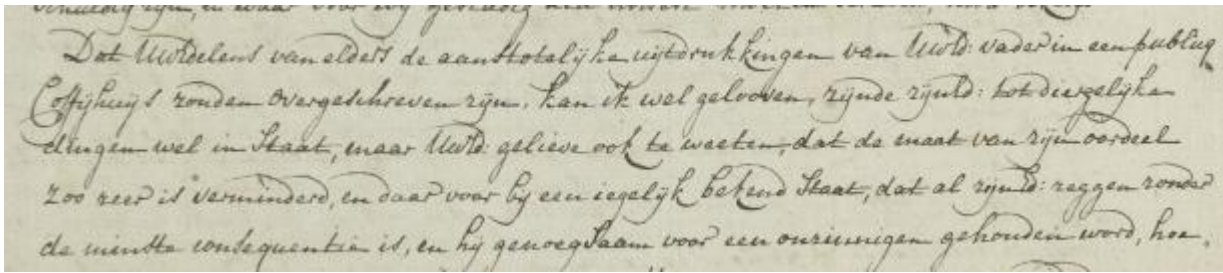 Dat UwEdelens van elders de aanstotelijke uijtdrukkingen van UwEd: vader in een publiq
Coffijhuijs zouden overgeschreven zijn, kan ik wel gelooven, zijnde zijn Ed: tot diergelijke
dingen wel in Staat, maar UwEd: gelieve ook te weeten, dat de maat van zijn oordeel
zoo zeer is verminderd, en daar voor bij een iegelijk bekend Staat, dat al zijn Ed: zeggen zonder
de minste consequentie is, en hij genoegsaam voor een onzinnigen gehouden word, hoe,